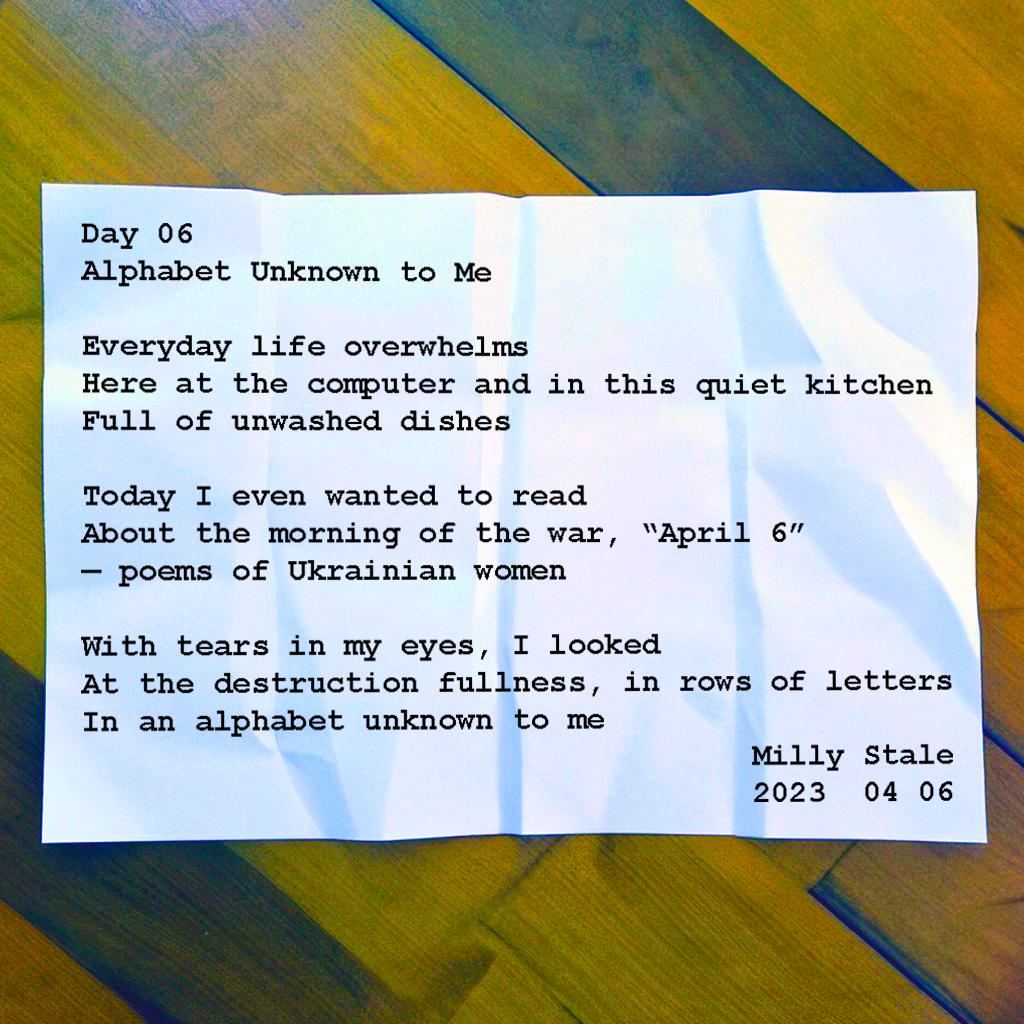 Day 06
Alphabet Unknown to Me
Everyday life overwhelms
Here at the computer and in this quiet kitchen
Full of unwashed dishes
Today I even wanted to read
About the morning of the war, “April 6”
— poems of Ukrainian women
With tears in my eyes, I looked
At the destruction fullness, in rows of letters
In an alphabet unknown to me
Milly Stale
2023 04 06